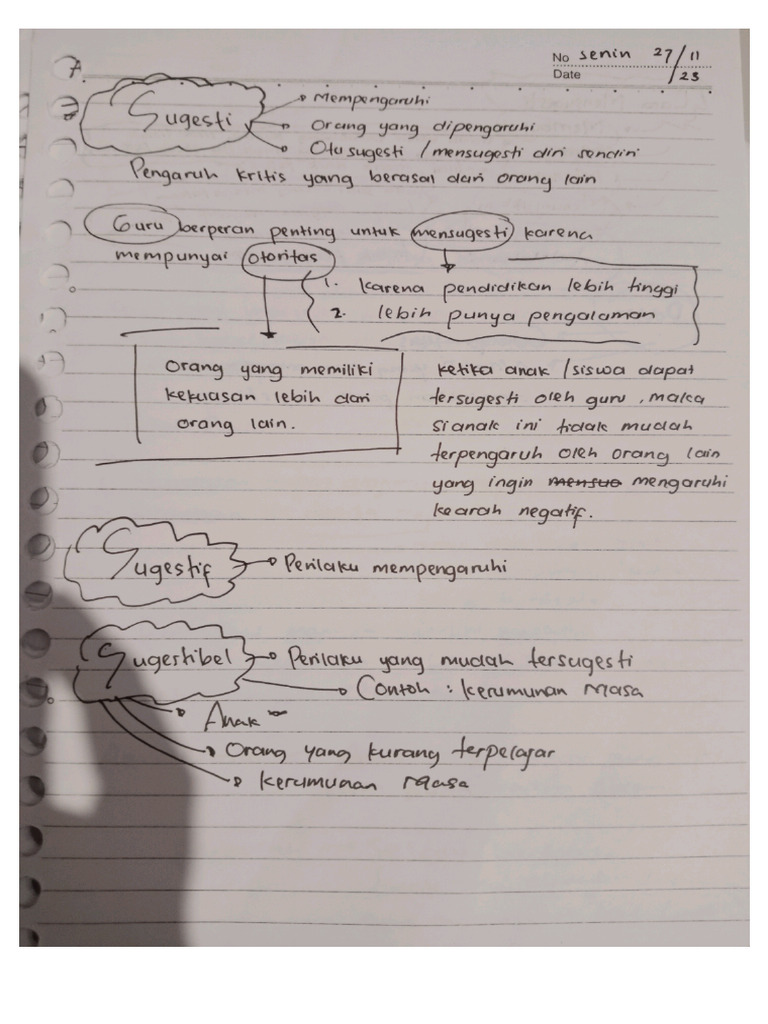 No senin 27/11
Date /23
7.
Sugesti
Mempengaruhi
Orang yang dipengaruhi
Otu sugesti / mensugesti diri sendiri
Pengaruh kritis yang berasal dari orang lain
Guru berperan penting untuk mensugesti karena
mempunyai otoritas
1. karena pendidikan lebih tinggi
2. lebih punya pengalaman
Orang yang memiliki
kekuasan lebih dari
orang lain.
ketika anak / siswa dapat
tersugesti oleh guru, maka
si anak ini tidak mudah
terpengaruh oleh orang lain
yang ingin mengaruhi
kearah negatif.
Sugestif
Perilaku mempengaruhi
Sugestibel
Perilaku yang mudah tersugesti
Contoh : kerumunan Masa
Anak
Orang yang kurang terpelajar
kerumunan Masa